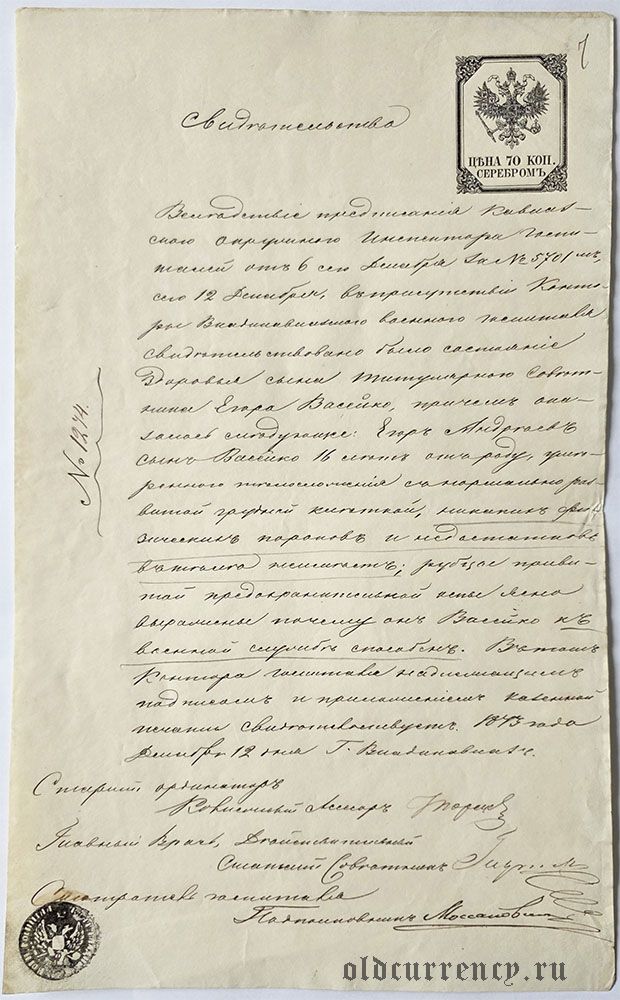 7
Свидѣтельство
ЦѢНА 70 КОП.
СЕРЕБРОМЪ
Вслѣдствіе предписанія Кавказ-
скаго Окружнаго Инспектора Госпи-
талей отъ 6 сего Декабря за № 5701мъ,
сего 12 Декабря, въ присутствіи Конто-
ры Владикавказскаго военнаго госпиталя
свидѣтельствовано было состояніе
здоровья сына Титулярнаго Совѣт-
ника Егора Васейко, причемъ ока-
залось слѣдующее: Егоръ Андреевъ
сынъ Васейко 16 лѣтъ отъ роду, умѣ-
реннаго тѣлосложенія съ нормально раз-
витой грудной клѣткой, никакихъ фи-
зическихъ пороковъ и недостатковъ
въ тѣлѣ не имѣетъ; рубцы приви-
той предохранительной оспы ясно
выражены почему онъ Васейко къ
военной службѣ способенъ. Въ томъ
Контора госпиталя надлежащимъ
подписомъ и приложеніемъ казенной
печати свидѣтельствуетъ. 1873 года
Декабря 12 дня Г. Владикавказъ.
№ 1274.
Старшій ординаторъ
Коллежскій Асесоръ
Главный Врачъ, Дѣйствительный
Статскій Совѣтникъ
Смотритель госпиталя
Подполковникъ
oldcurrency.ru